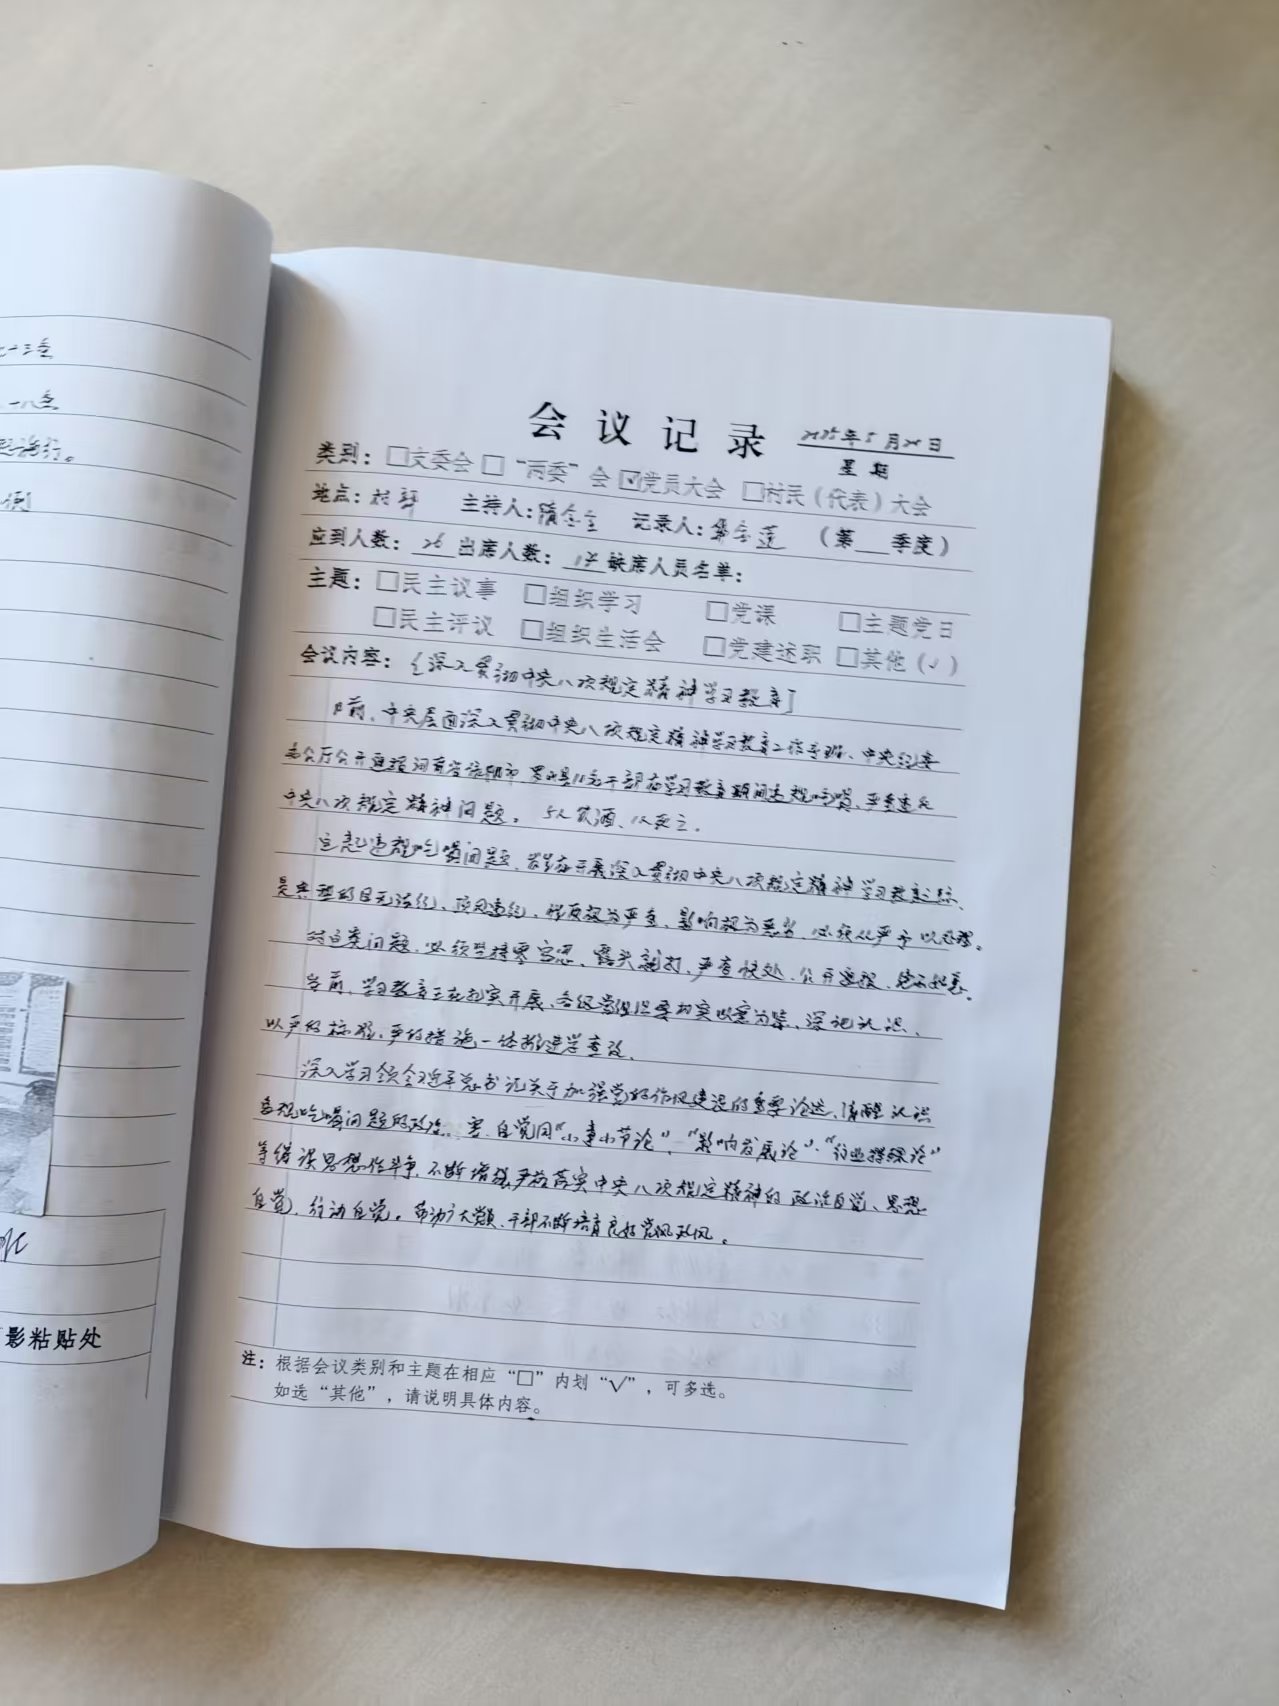 七十三条
十八条
起施行。
影粘贴处
会议记录
2025年5月20日
星期
类别：□支委会 □“两委”会 ☑党员大会 □村民（代表）大会
地点：村部 主持人：隋 记录人： （第 季度）
应到人数：26 出席人数：17 缺席人员名单：
主题：□民主议事 □组织学习 □党课 □主题党日
□民主评议 □组织生活会 □党建述职 □其他（√）
会议内容：[深入贯彻中央八次规定精神学习教育]
目前，中央层面深入贯彻中央八次规定精神学习教育工作专班、中央纪委
办公厅公开通报河南省信阳市 罗山县10名干部在学习教育期间违规吃喝、严重违反
中央八次规定精神问题。5人饮酒、1人死亡.
这起违规吃喝问题，发生在开展深入贯彻中央八次规定精神学习教育之际、
是典型的目无法纪、顶风违纪，性质极为严重、影响极为恶劣，必须从严予以处理。
对这类问题，必须坚持零容忍、露头就打、严查快处、公开通报、
当前，学习教育正在扎实开展、各级党组织要切实以案为鉴、深化认识、
以严的标准、严的措施一体推进学查改、
深入学习领会习近平总书记关于加强党的作风建设的重要论述、清醒认识
违规吃喝问题的政治 害，自觉同“小事小节论”、“影响发展论”、“行业特殊论”
等错误思想作斗争，不断增强严格落实中央八次规定精神的政治自觉、思想
自觉、行动自觉。带动广大党员、干部不断培育良好党风政风。
注：根据会议类别和主题在相应“□”内划“√”，可多选。
如选“其他”，请说明具体内容。